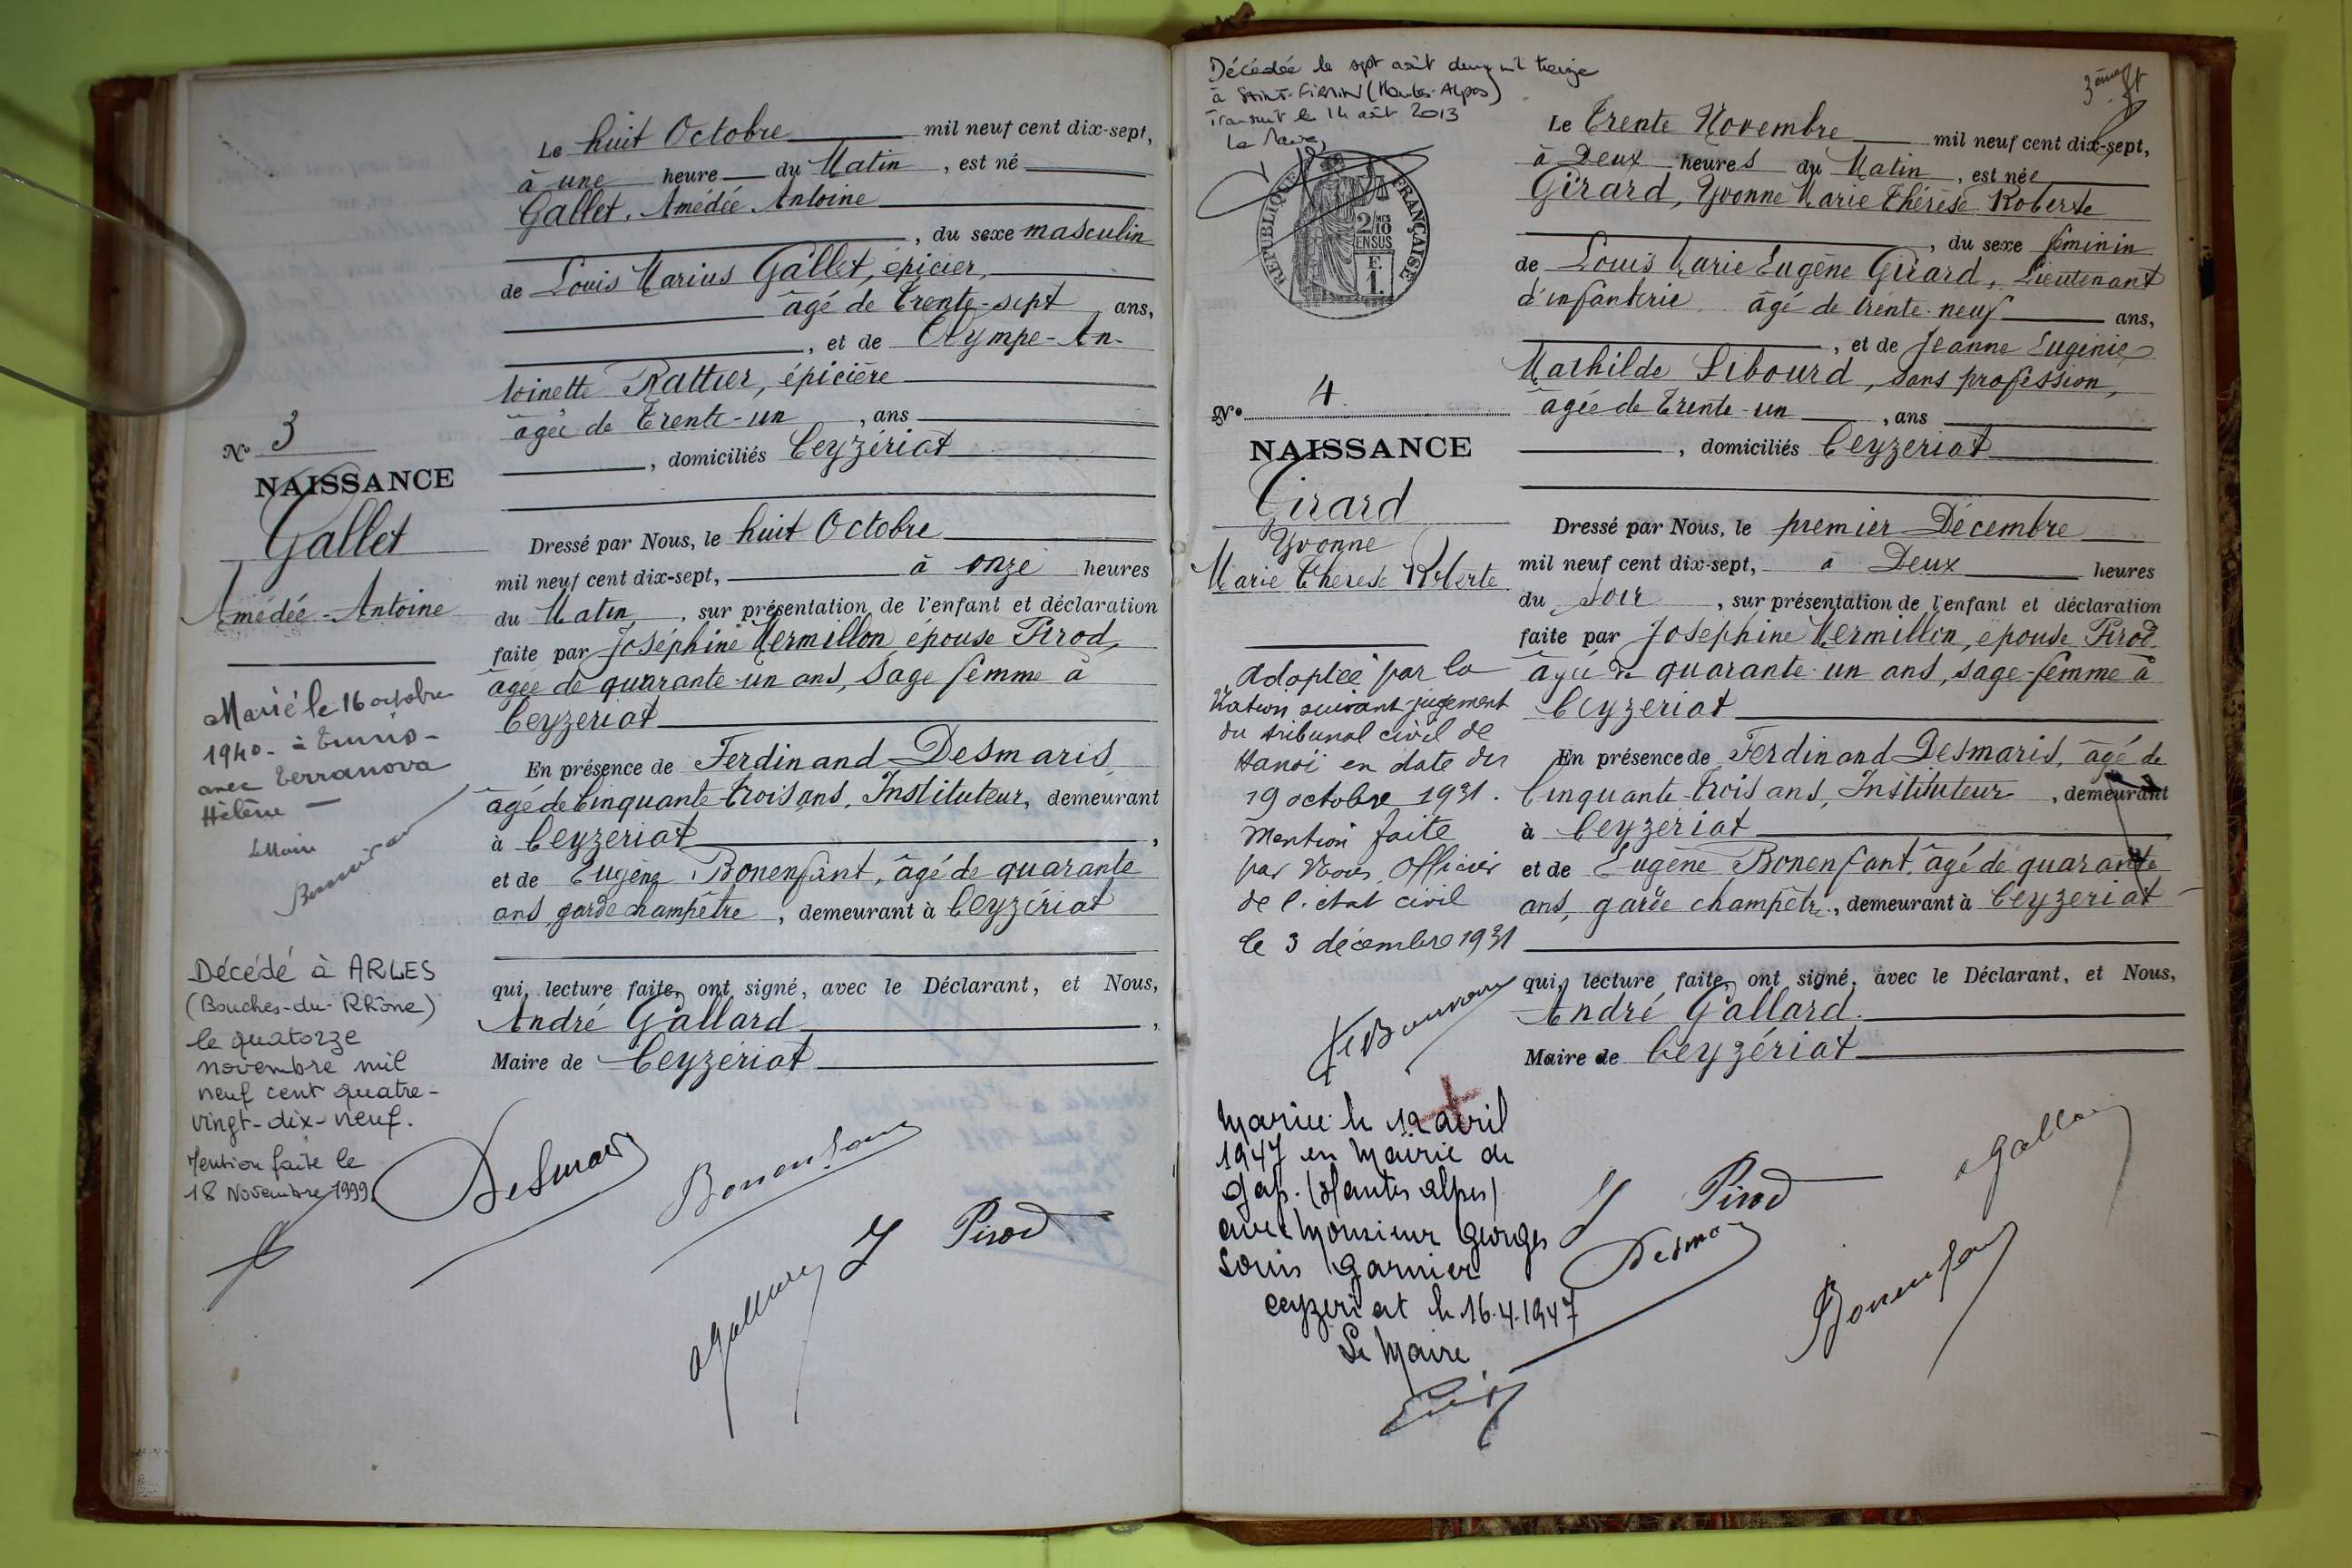 Le huit Octobre mil neuf cent dix-sept,
à une heure du Matin, est né
Gallet, Amédée Antoine
, du sexe masculin
de Louis Marius Gallet, épicier,
âgé de trente-sept ans,
, et de Olympe-An-
toinette Rattier, épicière
âgée de trente-un, ans
, domiciliés Ceyzériat
Nº 3
NAISSANCE
Gallet
Amédée-Antoine
Dressé par Nous, le huit Octobre
mil neuf cent dix-sept, à onze heures
du Matin, sur présentation de l'enfant et déclaration
faite par Joséphine Mermillon épouse Pirod,
âgée de quarante-un ans, sage femme à
Ceyzeriat
En présence de Ferdinand Desmaris,
âgé de Cinquante-trois ans, Instituteur, demeurant
à Ceyzeriat,
et de Eugène Bonenfant, âgé de quarante
ans, garde champêtre, demeurant à Ceyzériat
qui, lecture faite, ont signé, avec le Déclarant, et Nous,
André Gallard,
Maire de Ceyzériat
Marié le 16 octobre
1940 - à Tunis -
avec Terranova
Hélène -
Le Maire
Décédé à ARLES
(Bouches-du-Rhône)
le quatorze
novembre mil
neuf cent quatre-
vingt-dix-neuf.
Mention faite le
18 Novembre 1999
Desmaris
Bonenfant
J Pirod
A Gallard
Décédée le sept août deux mil treize
à SAINT-FIRMIN (Hautes-Alpes)
Transcrit le 14 août 2013
Le Maire
RÉPUBLIQUE FRANÇAISE
2/10 MES
EN SUS
F.
1.
3ème
Le trente Novembre mil neuf cent dix-sept,
à Deux heures du Matin, est née
Girard, Yvonne Marie Thérèse Roberte
, du sexe féminin
de Louis Marie Eugène Girard, Lieutenant
d'infanterie âgé de trente-neuf ans,
, et de Jeanne Eugénie
Mathilde Sibourd, sans profession,
âgée de trente-un, ans
, domiciliés Ceyzeriat
Nº 4
NAISSANCE
Girard
Yvonne
Marie Thérèse Roberte
Dressé par Nous, le premier Décembre
mil neuf cent dix-sept, à Deux heures
du soir, sur présentation de l'enfant et déclaration
faite par Joséphine Mermillon, épouse Pirod
âgée de quarante-un ans, sage-femme à
Ceyzeriat
En présence de Ferdinand Desmaris, âgé de
Cinquante-trois ans, Instituteur, demeurant
à Ceyzeriat
et de Eugène Bonenfant, âgé de quarante
ans, garde champêtre, demeurant à Ceyzeriat
qui, lecture faite, ont signé, avec le Déclarant, et Nous,
André Gallard.
Maire de Ceyzériat
adoptée par la
Nation suivant jugement
du tribunal civil de
Hanoi en date du
19 octobre 1931.
Mention faite
par Nous Officier
de l'état civil
le 3 décembre 1931
Mariée le 12 avril
1947 en Mairie de
Gap. (Hautes Alpes)
avec Monsieur Georges
Louis Garnier
Ceyzeriat le 16.4.1947
Le Maire
J Pirod
A Gallard
Desmaris
Bonenfant